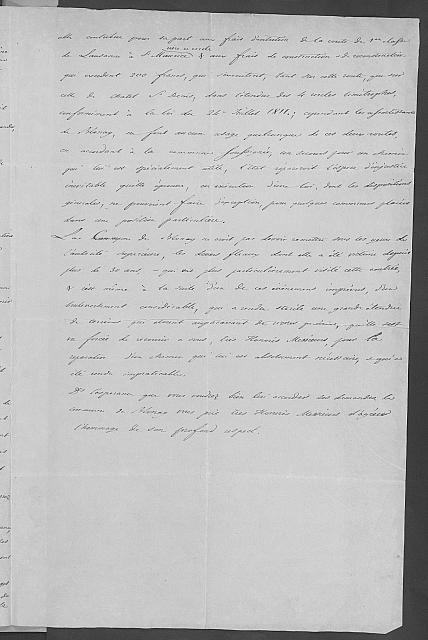 elle contribue pour sa part aux frais d'entretien de la route de 1ère classe
de Lausanne à St Maurice & aux frais de construction & de reconstruction
qui excèdent 200 francs, qui surviennent, tant sur cette route, que sur
celle de Chatel St Denis, dans l'étendue des 4 cercles limitrophes,
conformément à la loi du 24e Juillet 1811, cependant les
de Blonay, ne font aucun usage quelconque de ces deux routes,
en accordant à la commune un secours pour un chemin
qui lui est spécialement utile, l'état l'espèce d'injustice
inévitable qu'elle éprouve, en exécution d'une loi, dont les dispositions
générales, ne peuvent faire d'exception, pour quelques communes placées
dans une position particulière.
La Commune de Blonay ne croit pas devoir remettre sous les yeux de
l'autorité supérieure, les divers fléaux dont elle a été victime depuis
plus de 30 ans, qui ont plus particulièrement visité cette contrée,
& c'est même à la suite d'un de ces évènemens imprévus, d'un
éboulement considérable, qui a rendu stérile une grande étendue
de terrains qui étoient auparavant de prairies, qu'elle est
forcée de recourir à vous, très Honorés Messieurs, pour la
réparation d'un chemin qui lui est absolument nécessaire, & qui a
été rendu impraticable.
Dans l'espérance que vous voudrez bien lui accorder ses demandes, la
commune de Blonay vous prie très Honorés Messieurs d'agréer
l'hommage de son profond respect.